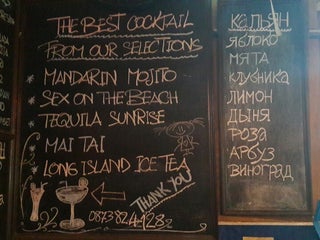 THE BEST COCKTAIL
FROM OUR SELECTIONS
* MANDARIN MOJITO
* SEX ON THE BEACH
* TEQUILA SUNRISE
* MAI TAI
* LONG ISLAND ICE TEA
THANK YOU
КАЛЬЯН
ЯБЛОКО
МЯТА
КЛУБНИКА
ЛИМОН
ДЫНЯ
РОЗА
АРБУЗ
ВИНОГРАД